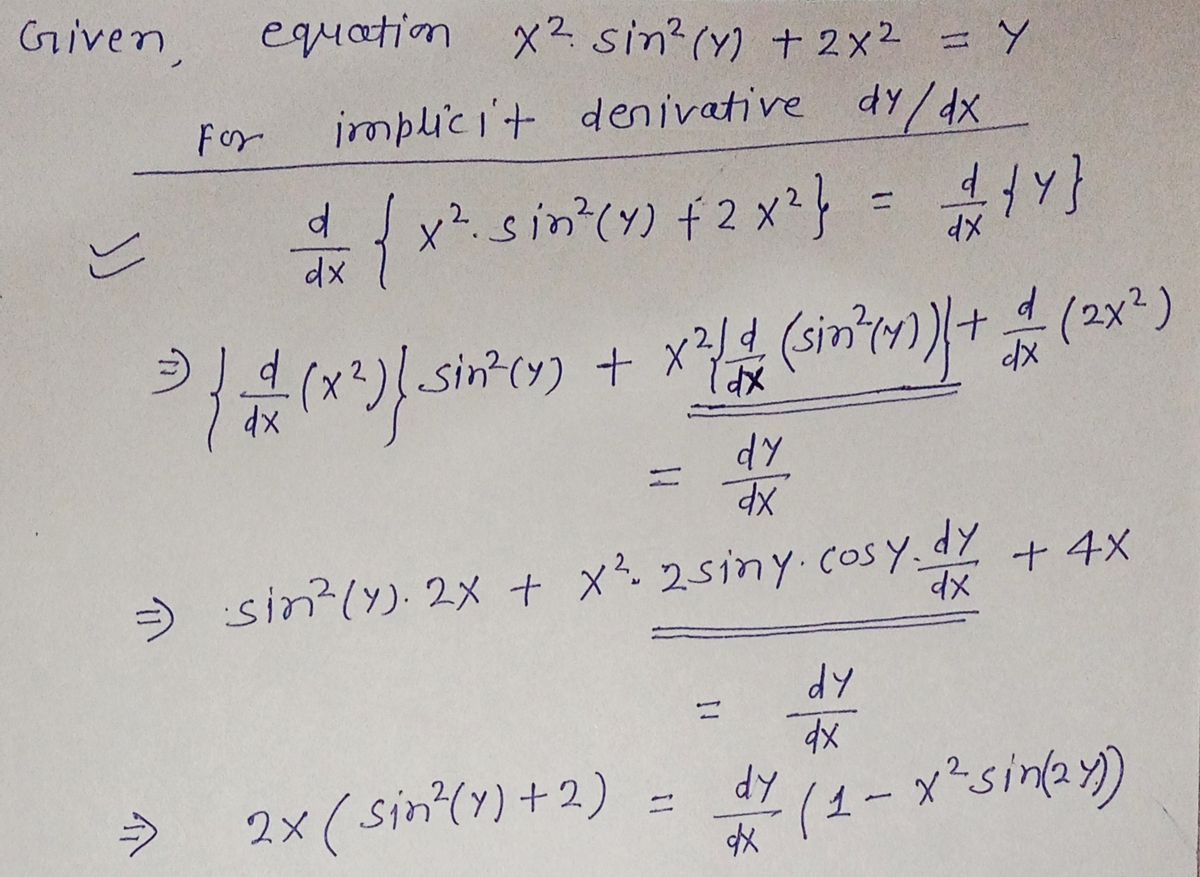 Given, equation x². sin²(y) + 2x² = y
For implicit derivative dy/dx
d/dx { x². sin²(y) + 2x² } = d/dx {y}
⇒ { d/dx (x²) } sin²(y) + x² { d/dx (sin²(y)) } + d/dx (2x²)
= dy/dx
⇒ sin²(y). 2x + x². 2siny. cosy. dy/dx + 4x
= dy/dx
⇒ 2x ( sin²(y) + 2 ) = dy/dx (1 - x² sin(2y))